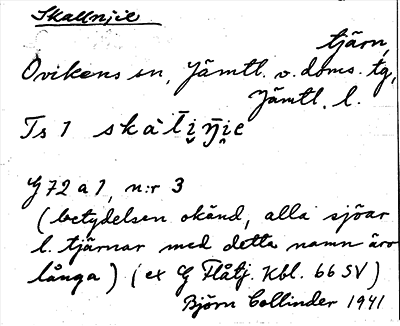 Skallnjie
tjärn,
Ovikens sn, Jämtl. v. doms. tg,
Jämtl. l.
Ts 1 skàlįŋįe
G 72 a 1, n:r 3
(betydelsen okänd, alla sjöar
l. tjärnar med detta namn äro
långa) (ex G Flåtj. Kbl. 66 SV)
Björn Collinder 1941